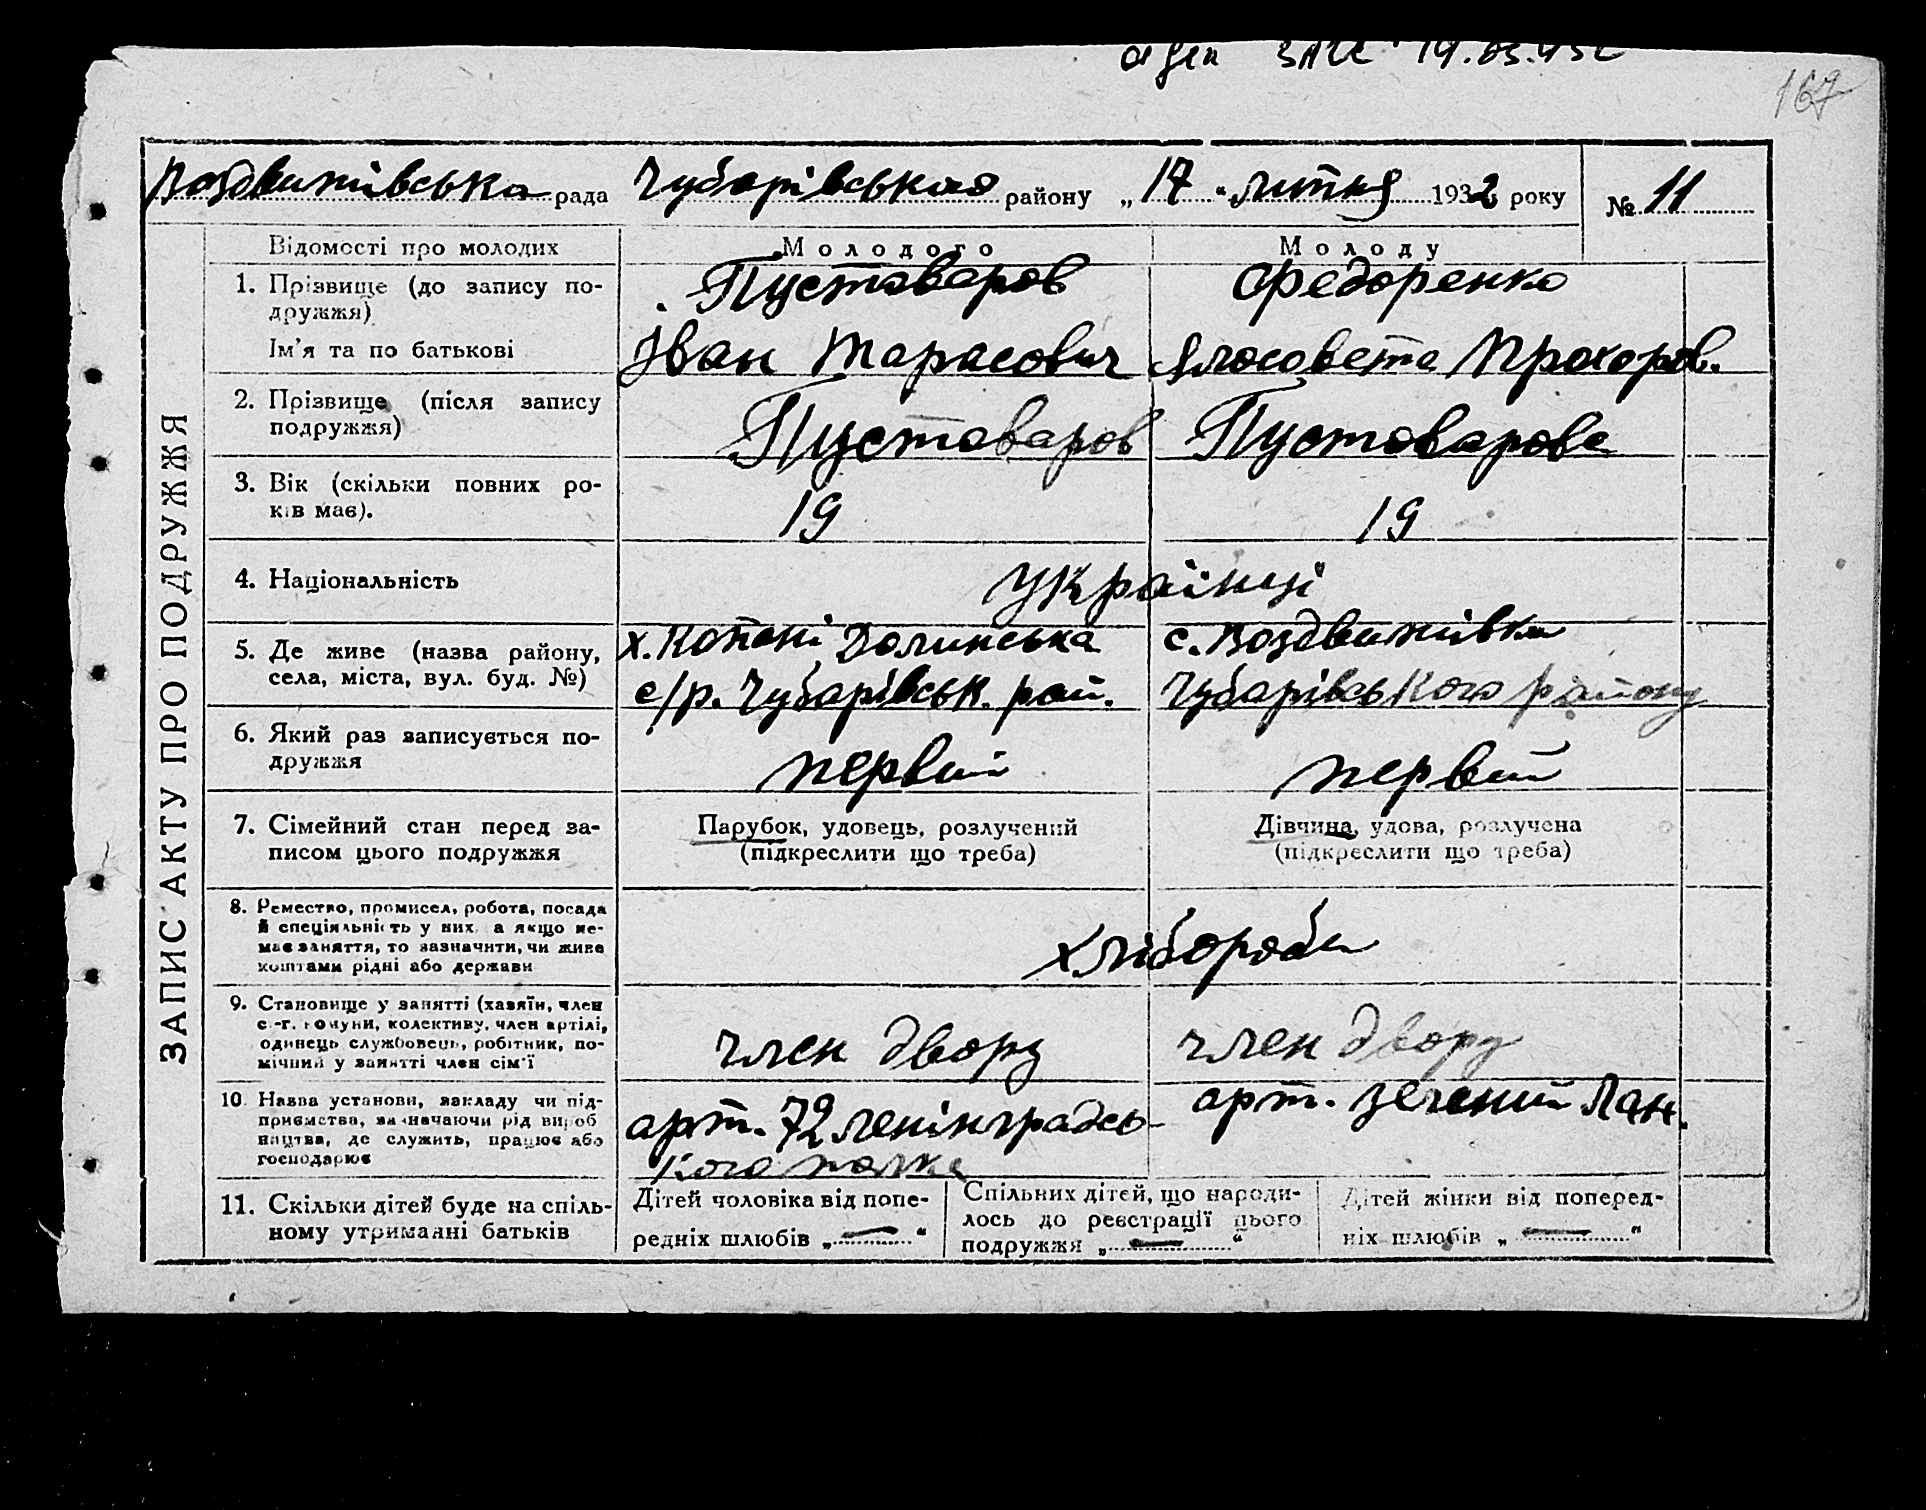 ЗАГС 19.03.
167
Воздвижівська рада Чубарівського району „ 17 “ лютня 1932 року № 11
ЗАПИС АКТУ ПРО ПОДРУЖЖЯ
Відомості про молодих Молодого Молоду
1. Прізвище (до запису по- Пустоваров Федоренко
дружжя)
Ім'я та по батькові Іван Тарасович Єлосовета Прохоров.
2. Прізвище (після запису Пустоваров Пустоварова
подружжя)
3. Вік (скільки повних ро- 19 19
ків має).
4. Національність українці
5. Де живе (назва району, х. Копані Долинська с. Воздвижівка
села, міста, вул. буд. №) с/р. Чубарівськ. рай. Чубарівського району
6. Який раз записується по- первий первий
дружжя
7. Сімейний стан перед за- Парубок, удовець, розлучений Дівчина, удова, розлучена
писом цього подружжя (підкреслити що треба) (підкреслити що треба)
8. Ремество, промисел, робота, посада
й спеціяльність у них, а якщо не-
має заняття, то зазначити, чи живе хлібороби
коштами рідні або держави
9. Становище у занятті (хазяїн, член
с.-г. комуни, колективу, член артілі,
одинець службовець, робітник, по- член двору член двору
мічний у занятті член сім'ї
10. Назва установи, закладу чи під- арт. Зелений Лан.
приємства, зазначаючи рід вироб- арт. 72 ленінградсь-
ництва, де служить, працює або
господарює кого полка
11. Скільки дітей буде на спіль- Дітей чоловіка від попе- Спільних дітей, що народи- Дітей жінки від поперед-
ному утриманні батьків редніх шлюбів „ — “ лось до реєстрації цього ніх шлюбів „ — “
подружжя „ — “